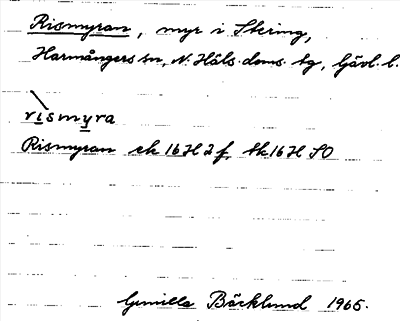 Rismyran, myr i Stering,
Harmångers sn, N. Häls. doms. tg, Gävl. l.
rismyra
Rismyran ek 16 H 2 f, tk 16 H SO
Gunilla Bäcklund 1965.